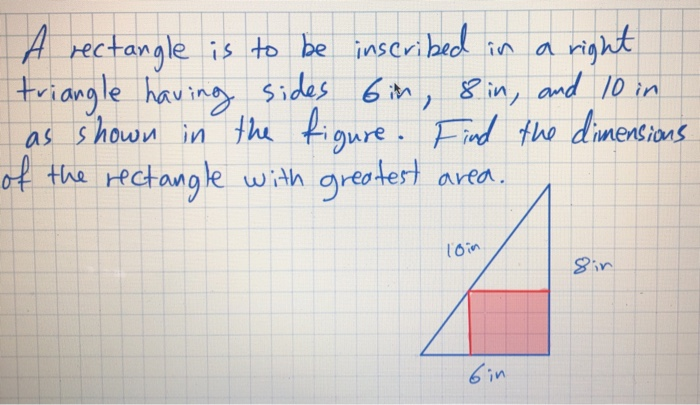 A rectangle is to be inscribed in a right
triangle having sides 6 in, 8 in, and 10 in
as shown in the figure. Find the dimensions
of the rectangle with greatest area.
10in
8in
6in